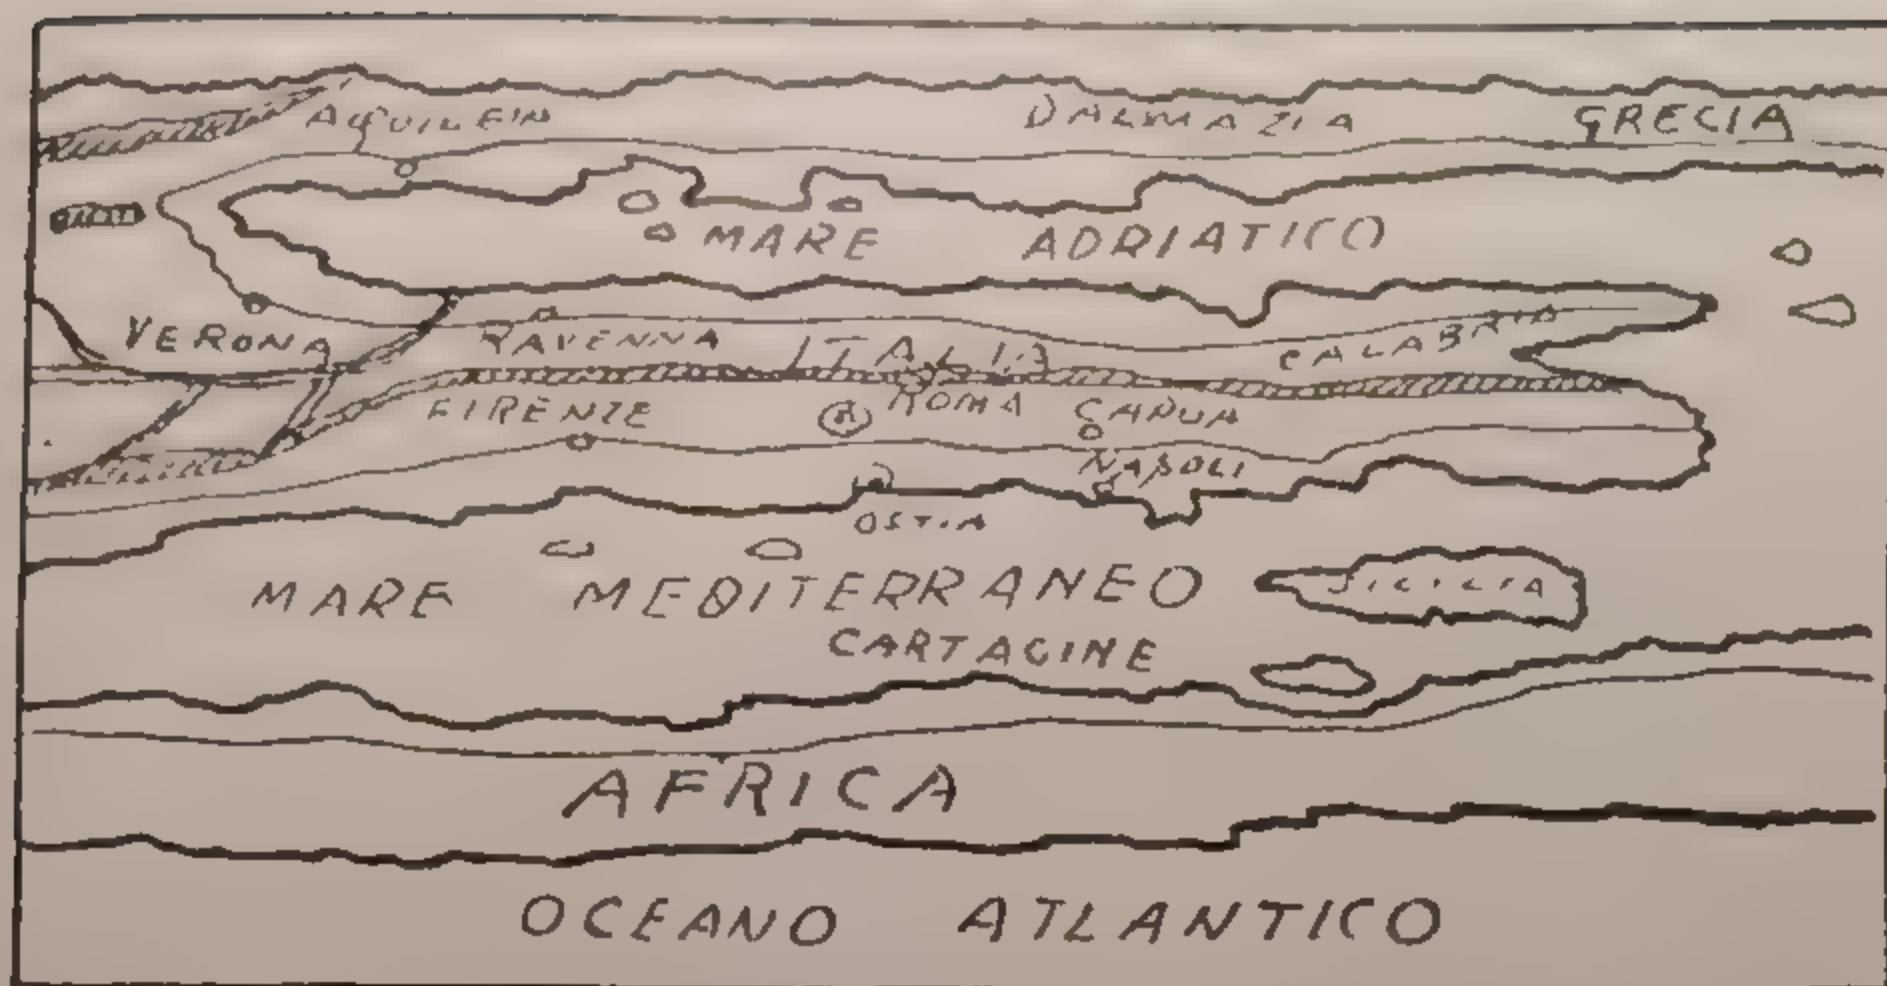 AQUILEIA DALMAZIA GRECIA
MARE ADRIATICO
VERONA RAVENNA ITALIA CALABRIA
FIRENZE ROMA CAPUA
NAPOLI
OSTIA
MARE MEDITERRANEO SICILIA
CARTAGINE
AFRICA
OCEANO ATLANTICO